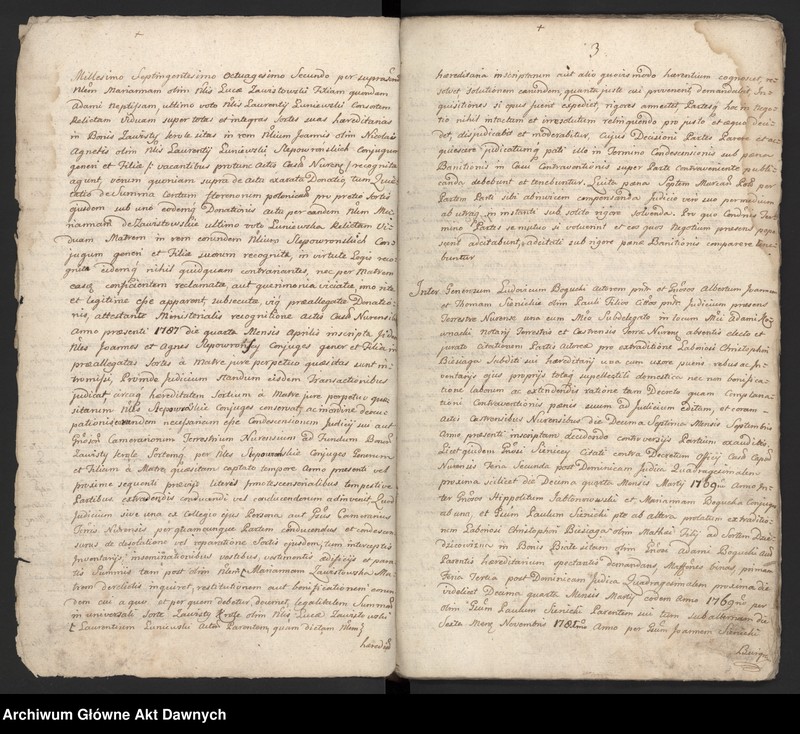 Millesimo Septingentesimo Octuagesimo Secundo per supra
Nlem Mariannam olim Nlis Lucæ Zawistowski Filiam quondam
Adami Neptissam, ultimo voto Nlis Laurentij Łuniewski Consortem
Relictam Viduam super totas et integras Sortes suas hæreditarias
in Bonis Zawisty Krole sitas in rem Nlium Joannis olim Nicolai
Agnetis olim Nlis Laurentij Łuniewski Slepowronskich Conjugum
generi et Filiæ vacantibus protunc Actis Castr Nuren recognita
agunt, verum quoniam supra de actu exarata Donatio, tum Quie
tatio de Summa Centum florenorum polonicali pro pretio Sortis
ejusdem sub uno eodemq Donationis actu per eandem Nlem Ma
riannam de Zawistowskie ultimo voto Łuniewska Relictam Vi
duam Matrem in rem eorundem Nlium Slepowronskich Con
jugum generi et Filiæ suorum recognita, in virtute Legis reco
gnita eidemq nihil quidquam contrariantes, nec per Matrem
easq conficientem reclamata, aut querimonia viciata, imo rite
et legitime esse apparent, subsecuta, viq præallegatæ Donatio
nis, attestante Ministerialis recognitione Actis Castr Nurensib
Anno præsenti 1787 die quarta Mensis Aprilis inscripta
Nles Joannes et Agnes Slepowronscy Conjuges gener et Filia in
præallegatas Sortes à Matre jure perpetuo quæsitas sunt in
tromissi, Proinde Judicium standum iisdem Transactionibus
judicat, circaq hæreditatem Sortium à Matre jure perpetuo quæ
sitarum Nles Slepowronskie Conjuges conservat, ac in ordine deoccu
pationis earundem necessarium esse Condescensionem Judicij sui aut
Gnsorum Camerariorum Terrestrium Nurensium ad Fundum Bonor
Zawisty Krole Sortemq per Nles Slepowronskie Conjuges Generum
et Filiam à Matre quæsitam captato tempore Anno præsenti vel
proxime sequenti prævijs literis Innotescentialibus tempestive
Partibus extradendis conducendi vel concludendorum adinvenit, Quod
Judicium sive una ex Collegio ejus Persona aut Gnsus Camerarius
Terris Nurensis per quamcunque Partem conducendus et condescen
surus de desolatione vel reparatione Sortis ejusdem, tum interceptis
Inventarijs, inseminationibus vestibus, vestimentis ædificijs et para
tis Summis tam post olim Nlem Mariannam Zawistowska Ma
trem derelictis inquiret, restitutionem aut bonificationem eorun
dem cui a quo et per quem debetur, decernet, legalitatem Summar
in universali Sorte Zawisty Krole olim Nlis Lucæ Zawistowski
Laurentium Łuniewski Autem Parentem, quam dictam Nlem
hæredit
3
hæreditaria inscriptarum aut alio quovis modo hærentium cognoscet, re
solvet solutionem earundem, quanta justa cui provenient, demandabit, In
quisitiones si opus fuerit expediet, rigores annectet Partesq hoc in Nego
tio nihil intactum et irresolutum relinquendo pro justo et æquo deci
det, disjudicabit et moderabitur, Cujus Decisioni Partes Parere et ac
quiescere judicatumq pati illo in Termino Condescensionis sub pœna
Banitionis in Casu Contraventionis super Parte Contraveniente publi
canda debebunt et tenebuntur. Luita pœna Septem Marcar Poli per
Partem Parti sibi abinvicem compensanda Judicio vero suo per medium
ab utraq in instanti sub solito rigore solvenda. Pro quo Condescens Ter
mino Partes se mutuo si voluerint et eos quos Negotium præsens pope
scerit adcitabunt, adcitati sub rigore pœnæ Banitionis comparere tene
buntur
Inter Generosum Ludovicum Bogucki Actorem pntr et Gnsos Albertum Joannem
et Thomam Sienickie olim Pauli Filios Citos pntr. Judicium præsens
Terrestre Nurense una cum Mco Subdelegato in locum Mci Adami
 Notarij Terrestris et Castrensis Terræ Nuren absentis electo et
jurato Citationem Partis Actoreæ pro extraditione Labriosi Christophori
Biesiaga Subditi sui hæreditarij una cum uxore pueris rebus ac In
ventarijs ejus proprijs totaq supellectili domestica nec non bonifica
tione laborum ac extendendis ratione tam Decreto quam Complana
tioni Contraventionis pœnis suum ad Judicium editam, et coram
Actis Castrensibus Nurensibus die Decima Septima Mensis Septembris
Anno præsenti inscriptam decidendo controversijs Partium exauditis,
Licet quidem Gnsi Sieniccy Citati contra Decretum Officij Castr Capit
Nurensis Feria Secunda post Dominicam Judica Quadragesimalem
proxima scilicet die Decima quarta Mensis Martij 1769no Anno In
ter Gnsos Hippolitum Jabłonowski et Mariannam Bogucka Conjuges
ab una, et Gsum Paulum Sienicki pte ab altera prolatum extraditio
nem Labriosi Christophori Biesiaga olim Mathæi Filij ad Sortem
 in Bonis Białe sitam olim Gnsi Adami Bogucki
Parentis hæreditarium spectantis demandans, Afffiones binas, primam
Feria Tertia post Dominicam Judica Quadragesimalem proxima die
videlicet Decima quarta Mensis Martij eodem Anno 1769no per
olim Gsum Paulum Sienicki Parentem sui item sub alternam die
Sexta Mens Novembris 1781mo Anno per Gsum Joannem Sienicki
Archiwum Główne Akt Dawnych